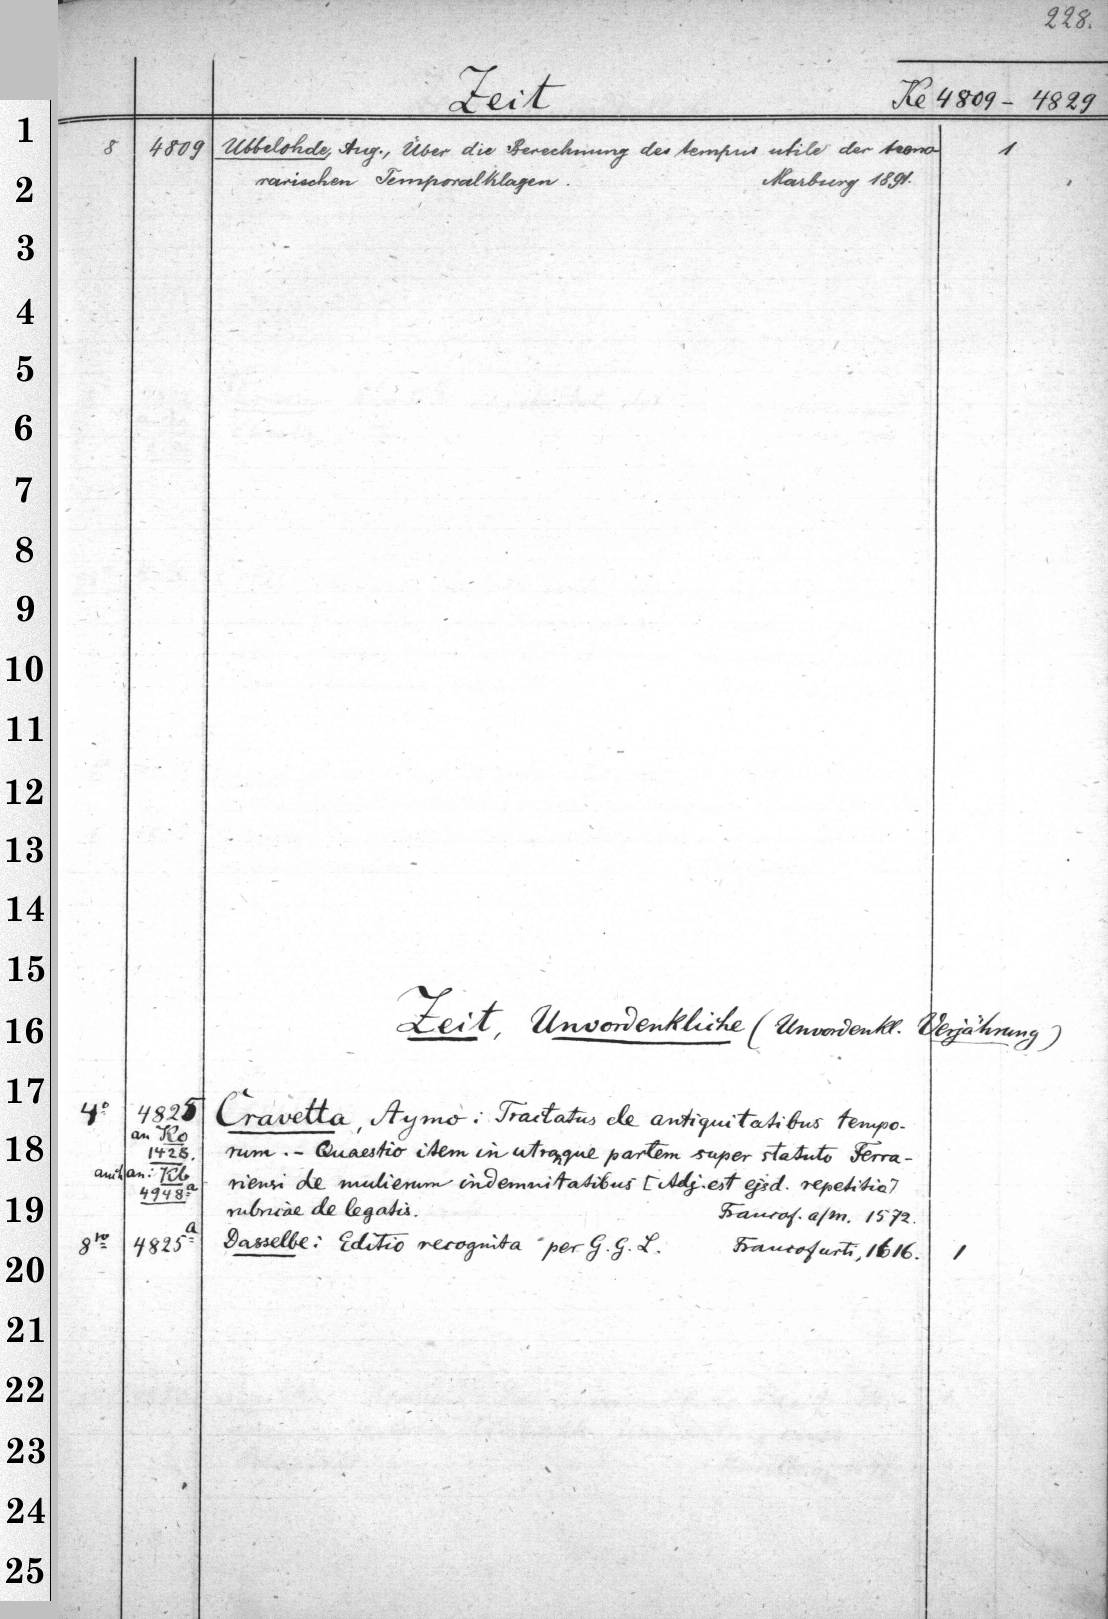 228.
Zeit Ke 4809 - 4829
8 4809 Ubbelohde, Aug., Über die Berechnung des tempus utile der hono-
rarischen Temporalklagen. Marburg 1891. 1
Zeit, Unvordenkliche (Unvordenkl. Verjährung)
4° 4825 Cravetta, Aymo: Tractatus de antiquitatibus tempo-
an Ko 1425. rum. - Quaestio item in utramque partem super statuto Ferra-
auch an: Kb 4948a riensi de mulierum indemnitatibus [Adj. est ejsd. repetitio]
rubricae de legatis. Francof. a/m. 1572.
8vo 4825a Dasselbe: Editio recognita per G. G. L. Francofurti, 1616. 1
1
2
3
4
5
6
7
8
9
10
11
12
13
14
15
16
17
18
19
20
21
22
23
24
25